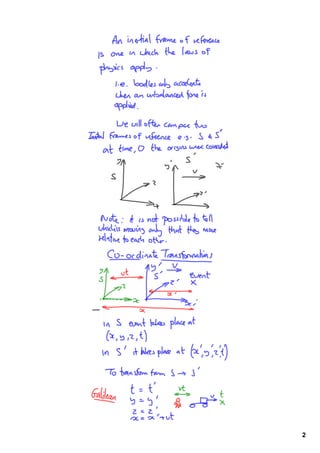 An inertial frame of reference
is one in which the laws of
physics apply.
i.e. bodies only accelerate
when an unbalanced force is
applied.
We will often compare two
Inertial frames of reference e.g. S & S'
at time, 0 the origins were coincided
S
z
y'
S'
v
z'
Note: it is not possible to tell
which is moving only that they move
relative to each other.
Co-ordinate Transformations
y
S
vt
z
x
y'
v
S'
z'
event
X
x'
x'
x
in S event takes place at
(x, y, z, t)
in S' it takes place at (x', y', z', t')
To transform from S → S'
Galilean
t = t'
y = y'
z = z'
x = x' + vt
vt
v
t
x
2